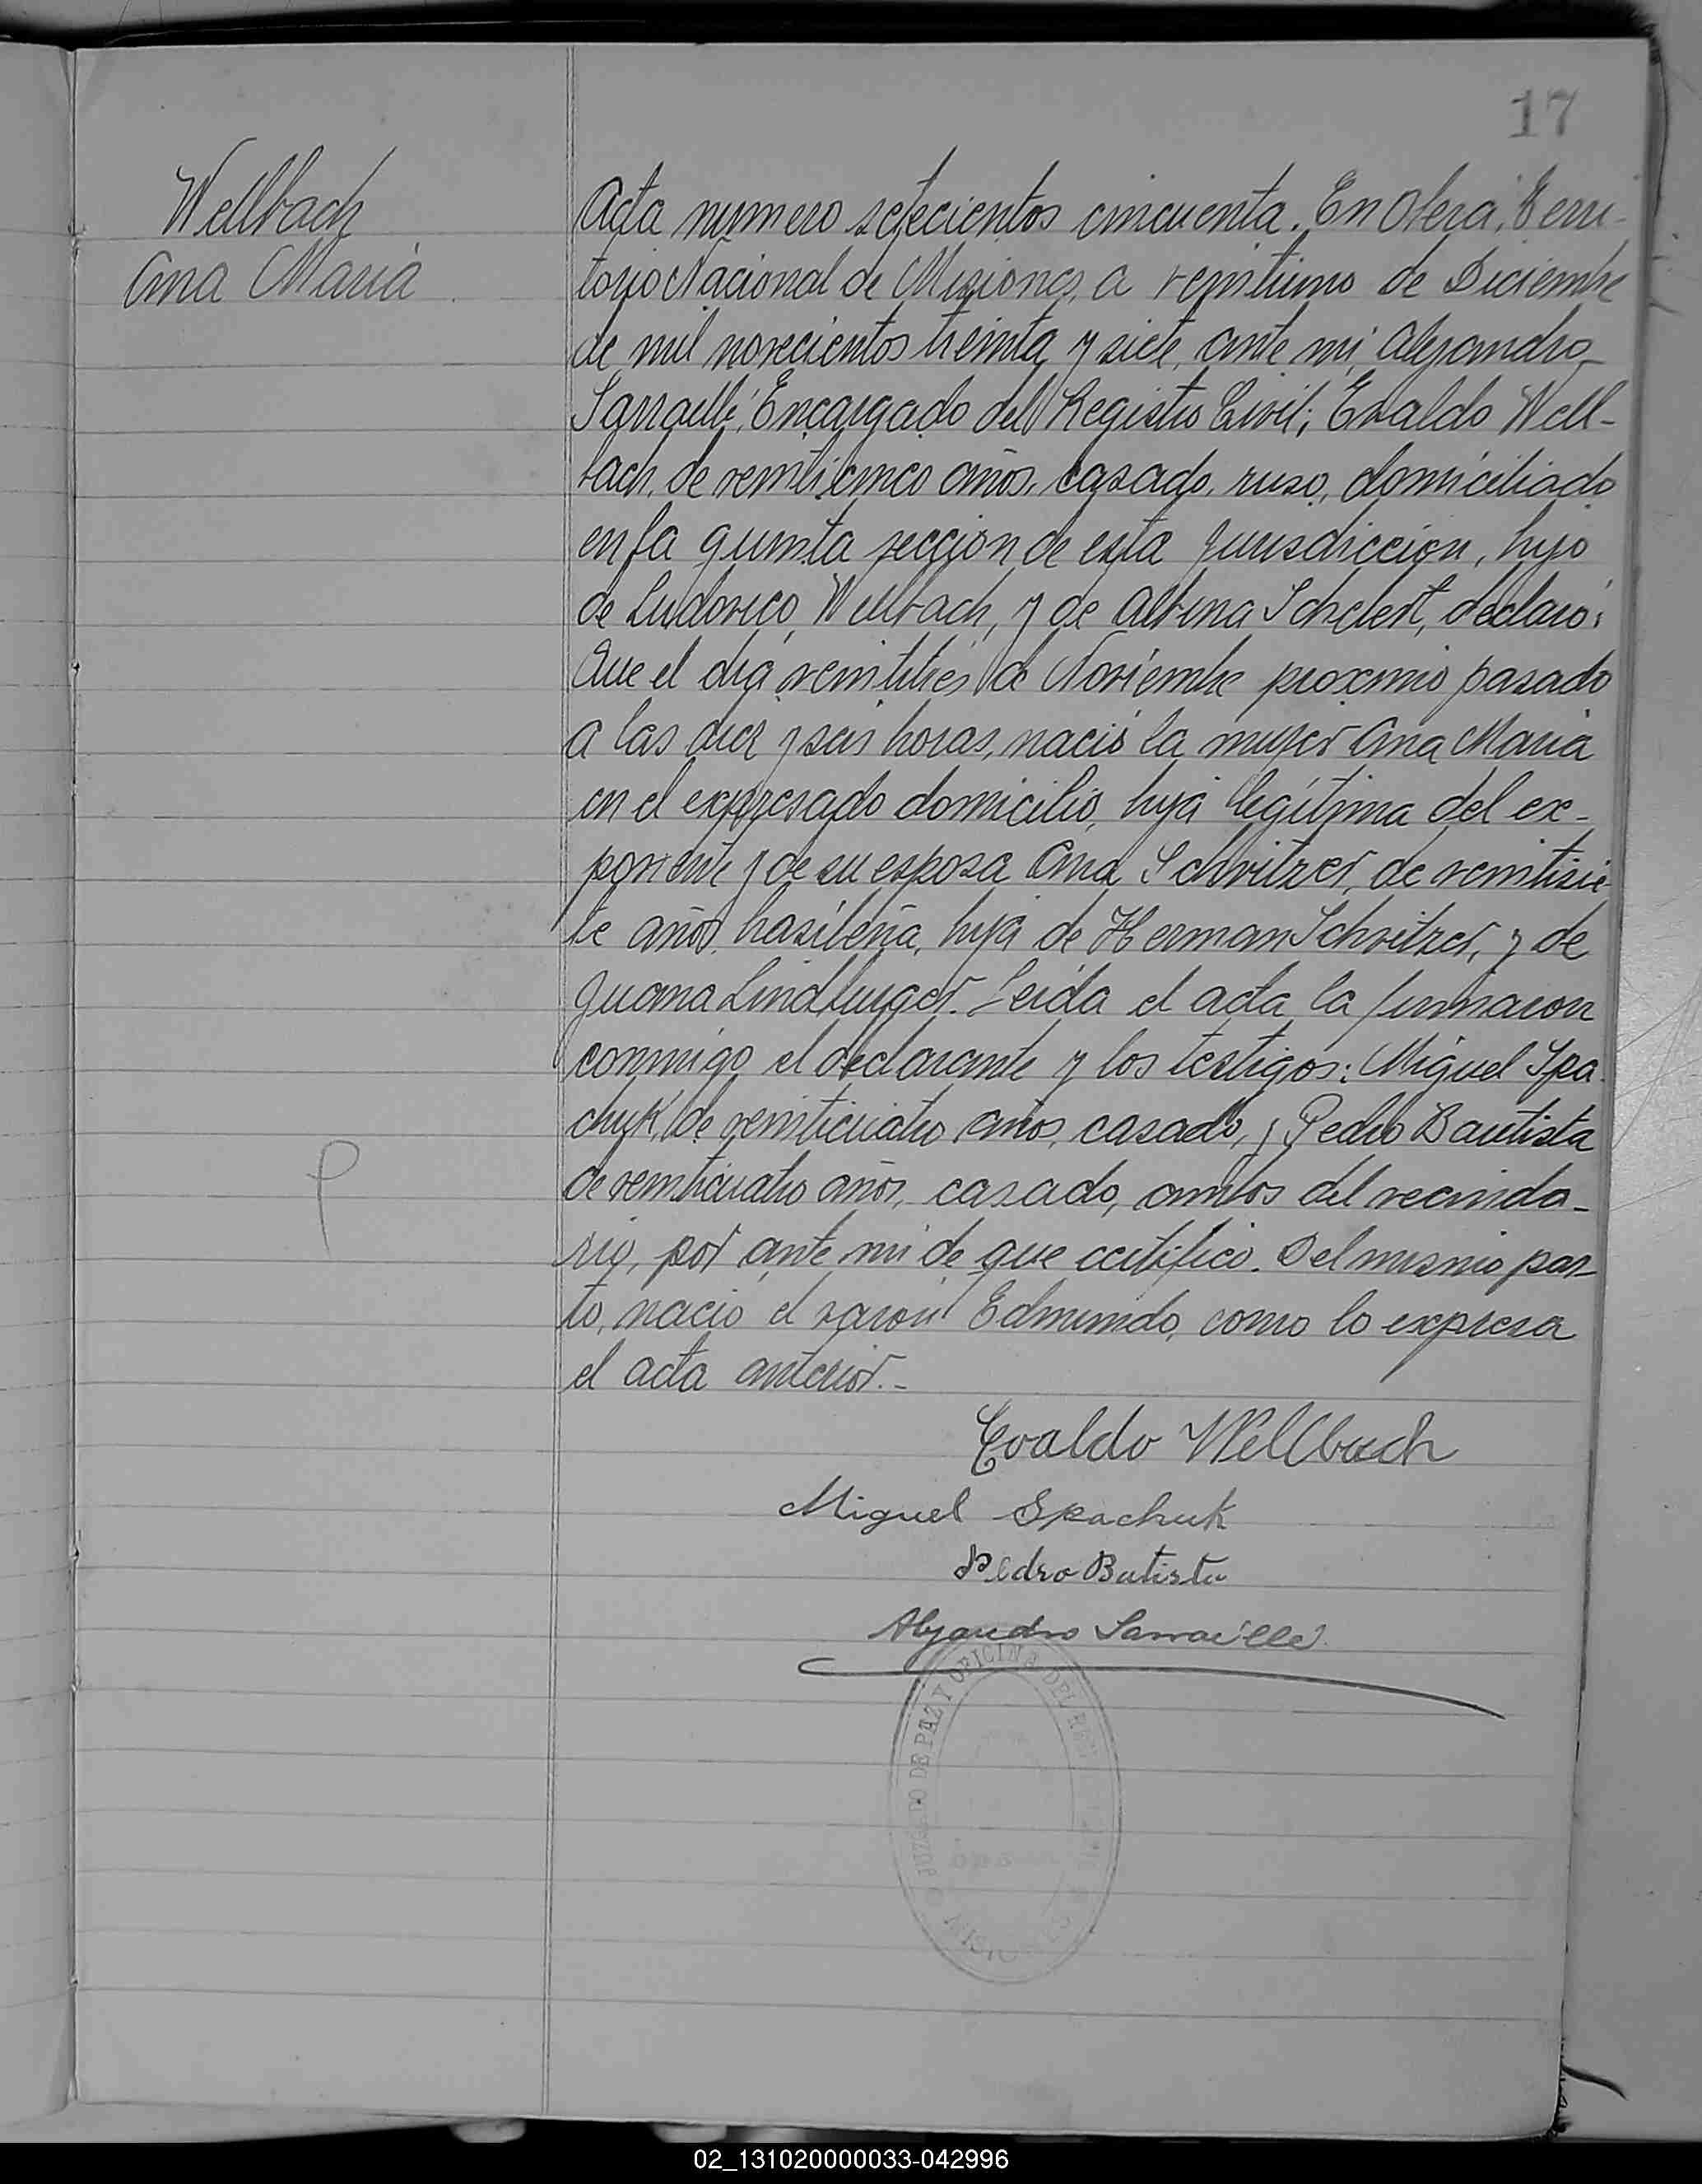 17
Wellbach
Ana María
Acta numero setecientos cincuenta. En Oberá, Terri-
torio Nacional de Misiones, a veintiuno de Diciembre
de mil novecientos treinta y siete, ante mi, Alejandro
Sarraillé, Encargado del Registro Civil; Evaldo Well-
bach, de veinticinco años, casado, ruso, domiciliado
en la quinta sección de esta jurisdiccion, hijo
de Ludovico Wellbach, y de Albina declaró:
Que el día veintitrés de Noviembre proximo pasado
a las diez y seis horas, nació la mujer Ana María
en el expresado domicilio, hija legítima del ex-
ponente y de su esposa Ana Schvitzer, de veintisie-
te años, brasileña, hija de Herman Schvitzer, y de
Juana Lindburger. Leída el acta la firmaron
conmigo el declarante y los testigos: Miguel Spa-
chuk, de veinticuatro años, casado, y Pedro Bautista
de veinticuatro años, casado, ambos del vecinda-
rio, por ante mi de que certifico. Del mismo par-
to, nació el varon Edmundo, como lo expresa
el acta anterior.-
Evaldo Wellbach
Miguel Spachuk
Pedro Batista
Alejandro Sarraillé
JUZGADO DE PAZ Y OFICINA DEL
MISIONES
02_131020000033-042996